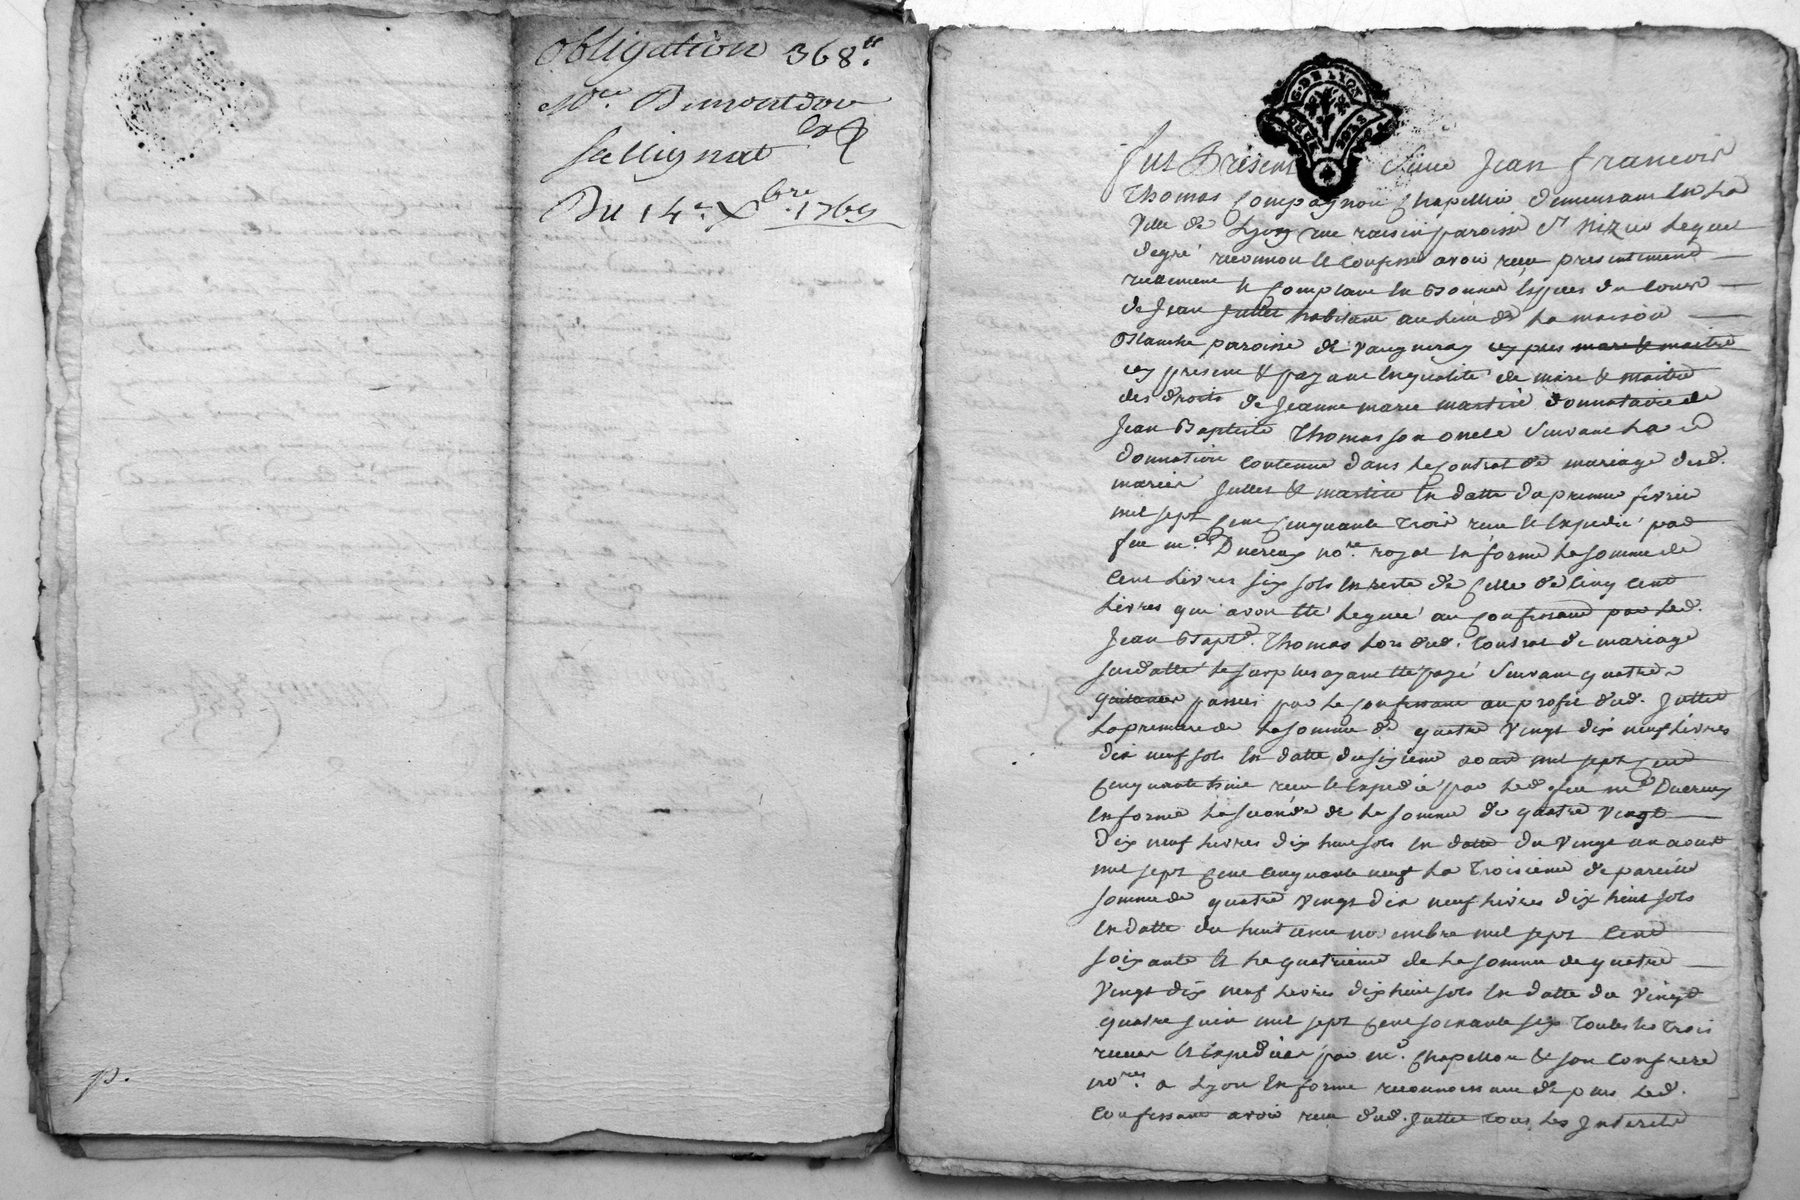 obligation 368.tt
Du 14e. Xbre. 1769
p.
G. DE LYON
Fut Présent Sieur Jean francois
Thomas Compagnon Chapellier demeurant en la
Ville de Lyon rue raisin paroisse St nizier Lequel
degré reconnoit & confesse avoir receu presentement
reellement & comptant en Bonnes especes du cours
de Jean Jullet habitant au lieu de La maison
Blanche paroisse de Vaugneray icy pres mare & maitre
icy present & payant en qualité de mare & maitre
des droits de Jeanne marie martin donnataire de
Jean Baptiste Thomas son oncle Suivant La
donnation contenue dans le Contrat de mariage desd.
mariés Jullet & martin en datte du premier fevrier
mil sept Cent Cinquante trois receu & expedié par
feu me. Ducreux nore. royal en forme La somme de
Cent Livres six sols en reste de Celle de Cinq Cent
Livres qui avoit eté Leguée au Confessant par Led.
Jean Bapte. Thomas Lors dud. Contrat de mariage
susdatté Le surplus ayant eté payé Suivant quatre
quitances passées par Le Confessant au profit dud. Jullet
La premiere de La somme de quatre Vingt dix neuf Livres
dix neuf sols en datte du sixieme aout mil sept Cent
Cinquante huit receu & expedié par Led. feu me Ducreux
en forme La seconde de La somme de quatre Vingt
Dix neuf Livres dix huit sols en datte du Vingt un aoust
mil sept Cent Cinquante neuf La troisieme de pareille
somme de quatre Vingt dix neuf Livres dix huit sols
en datte du huitieme novembre mil sept Cent
soixante & La quatrieme de La somme de quatre
Vingt dix neuf Livres dix huit sols en datte du Vingt
quatre juin mil sept Cent soixante six toutes Les trois
receues & expediées par me. Chapellon & son Confrere
nores. a Lyon en forme reconnoissant de plus Led.
Confessant avoir receu dud. Jullet tous Les Interets